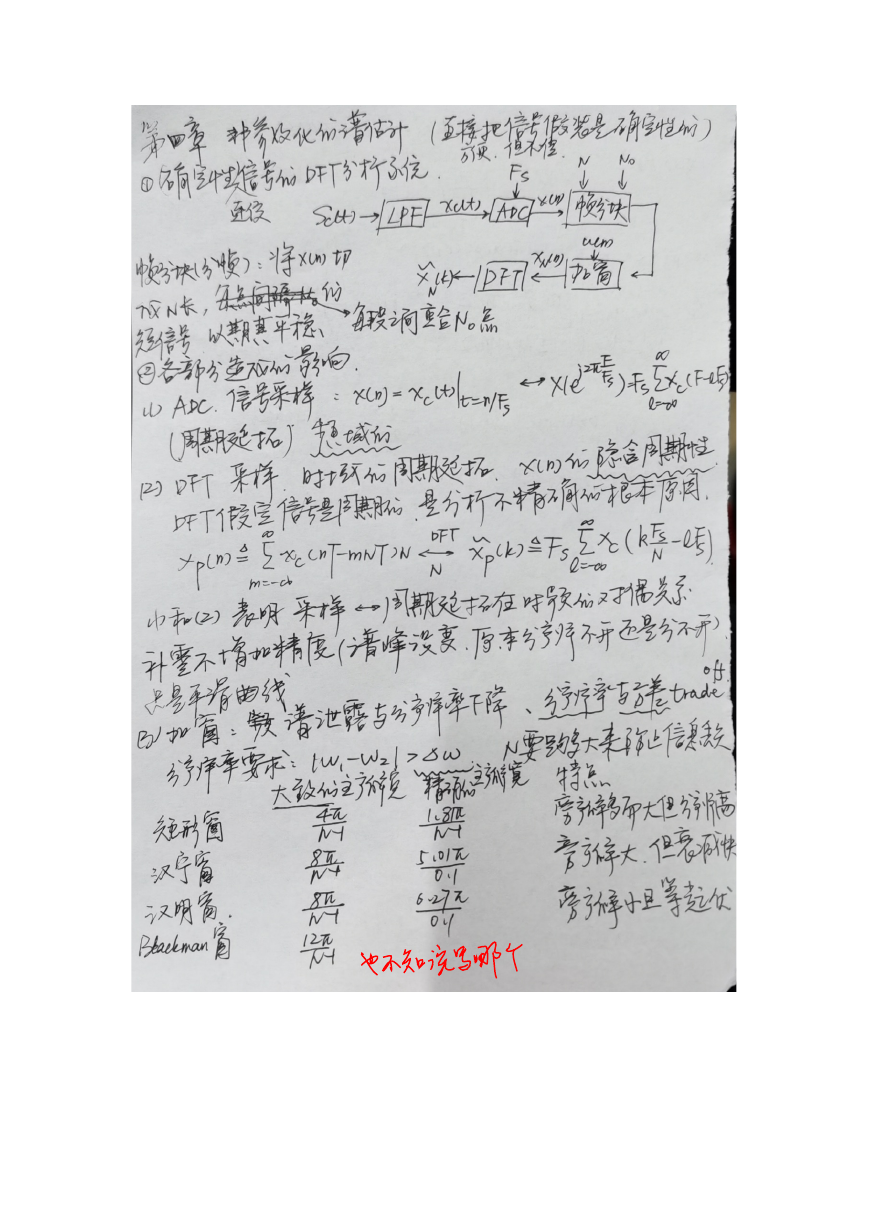 第四章 非参数化的谱估计 (直接把信号假装是确定性的)
方便,但不准.
①确定性信号的DFT分析系统.
Fs N N₀
Sc(t)→LPF xc(t)→ADC x(n)→帧分块
帧分块(分帧):将x(n)切
w(n)
X̃N(k)←DFT←xN(n) 加窗←
N长,每点间隔N₀的
短信号 以期其平稳、 每段之间重合N₀点
②各部分造成的影响.
(1) ADC. 信号采样: x(n)=xc(t)|t=n/Fs ↔ X(e^{j2πF/Fs})=Fs∑_{l=-∞}^{∞}Xc(F-lFs)
(周期延拓) 频域的
(2) DFT 采样. 时域的周期延拓. x(n)的隐含周期性
DFT假定信号是周期的.是分析不精确的根本原因.
xp(n)≜∑_{m=-∞}^{∞}xc(nT-mNT)N ↔DFT N X̃p(k)≜Fs∑_{l=-∞}^{∞}Xc(kFs/N-lFs).
(1)和(2)表明 采样↔周期延拓在时频的对偶关系
补零不增加精度(谱峰没变.原来分辨不开还是分不开).
只是平滑曲线
(3) 加窗: 谱泄露与分辨率下降、分辨率与方差trade off.
分辨率要求: |W₁-W₂|>ΔW N要足够大来防止信息丢失
大致的主瓣宽 精确的主瓣宽 特点
矩形窗 4π/N-1 1.8π/N-1 旁瓣高而大但分辨高
汉宁窗 8π/N-1 5.01π/N-1 旁瓣大.但衰减快
汉明窗. 8π/N-1 6.27π/N-1 旁瓣小且等起伏
Blackman窗 12π/N-1
也不知该写哪个